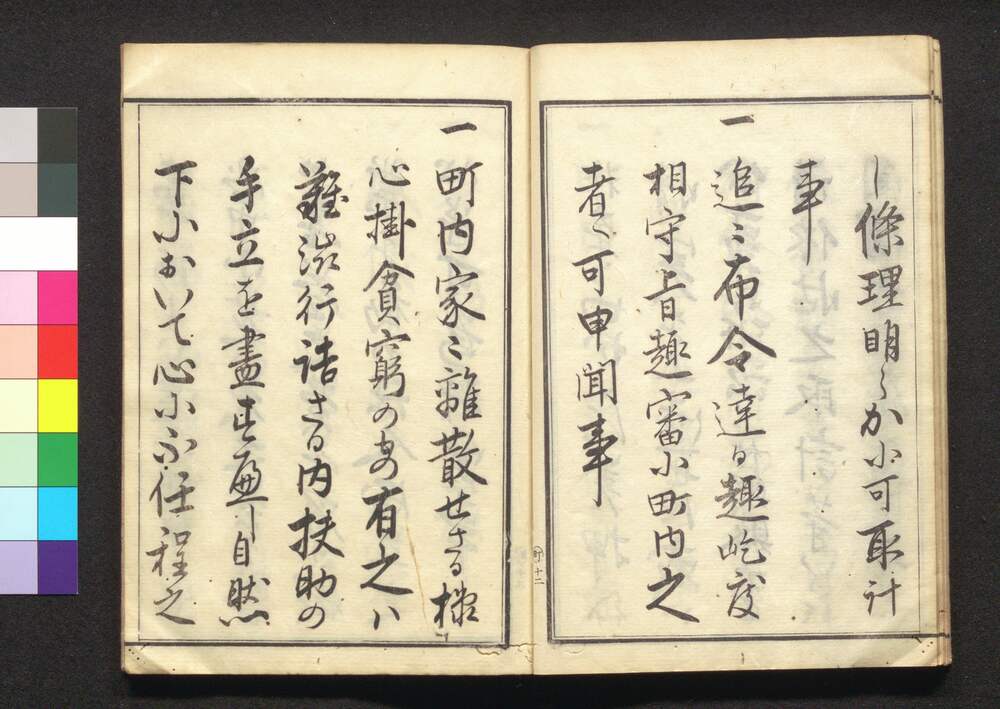 し條理明らかに可取計
事
一
追〻布令達る趣屹度
相守旨趣審に町内之
者へ可申聞事
町十二
一
町内家〻離散せさる様
心掛貧窮のもの有之ハ
難澁行詰さる内扶助の
手立を盡すへし自然
下において心に不任程之